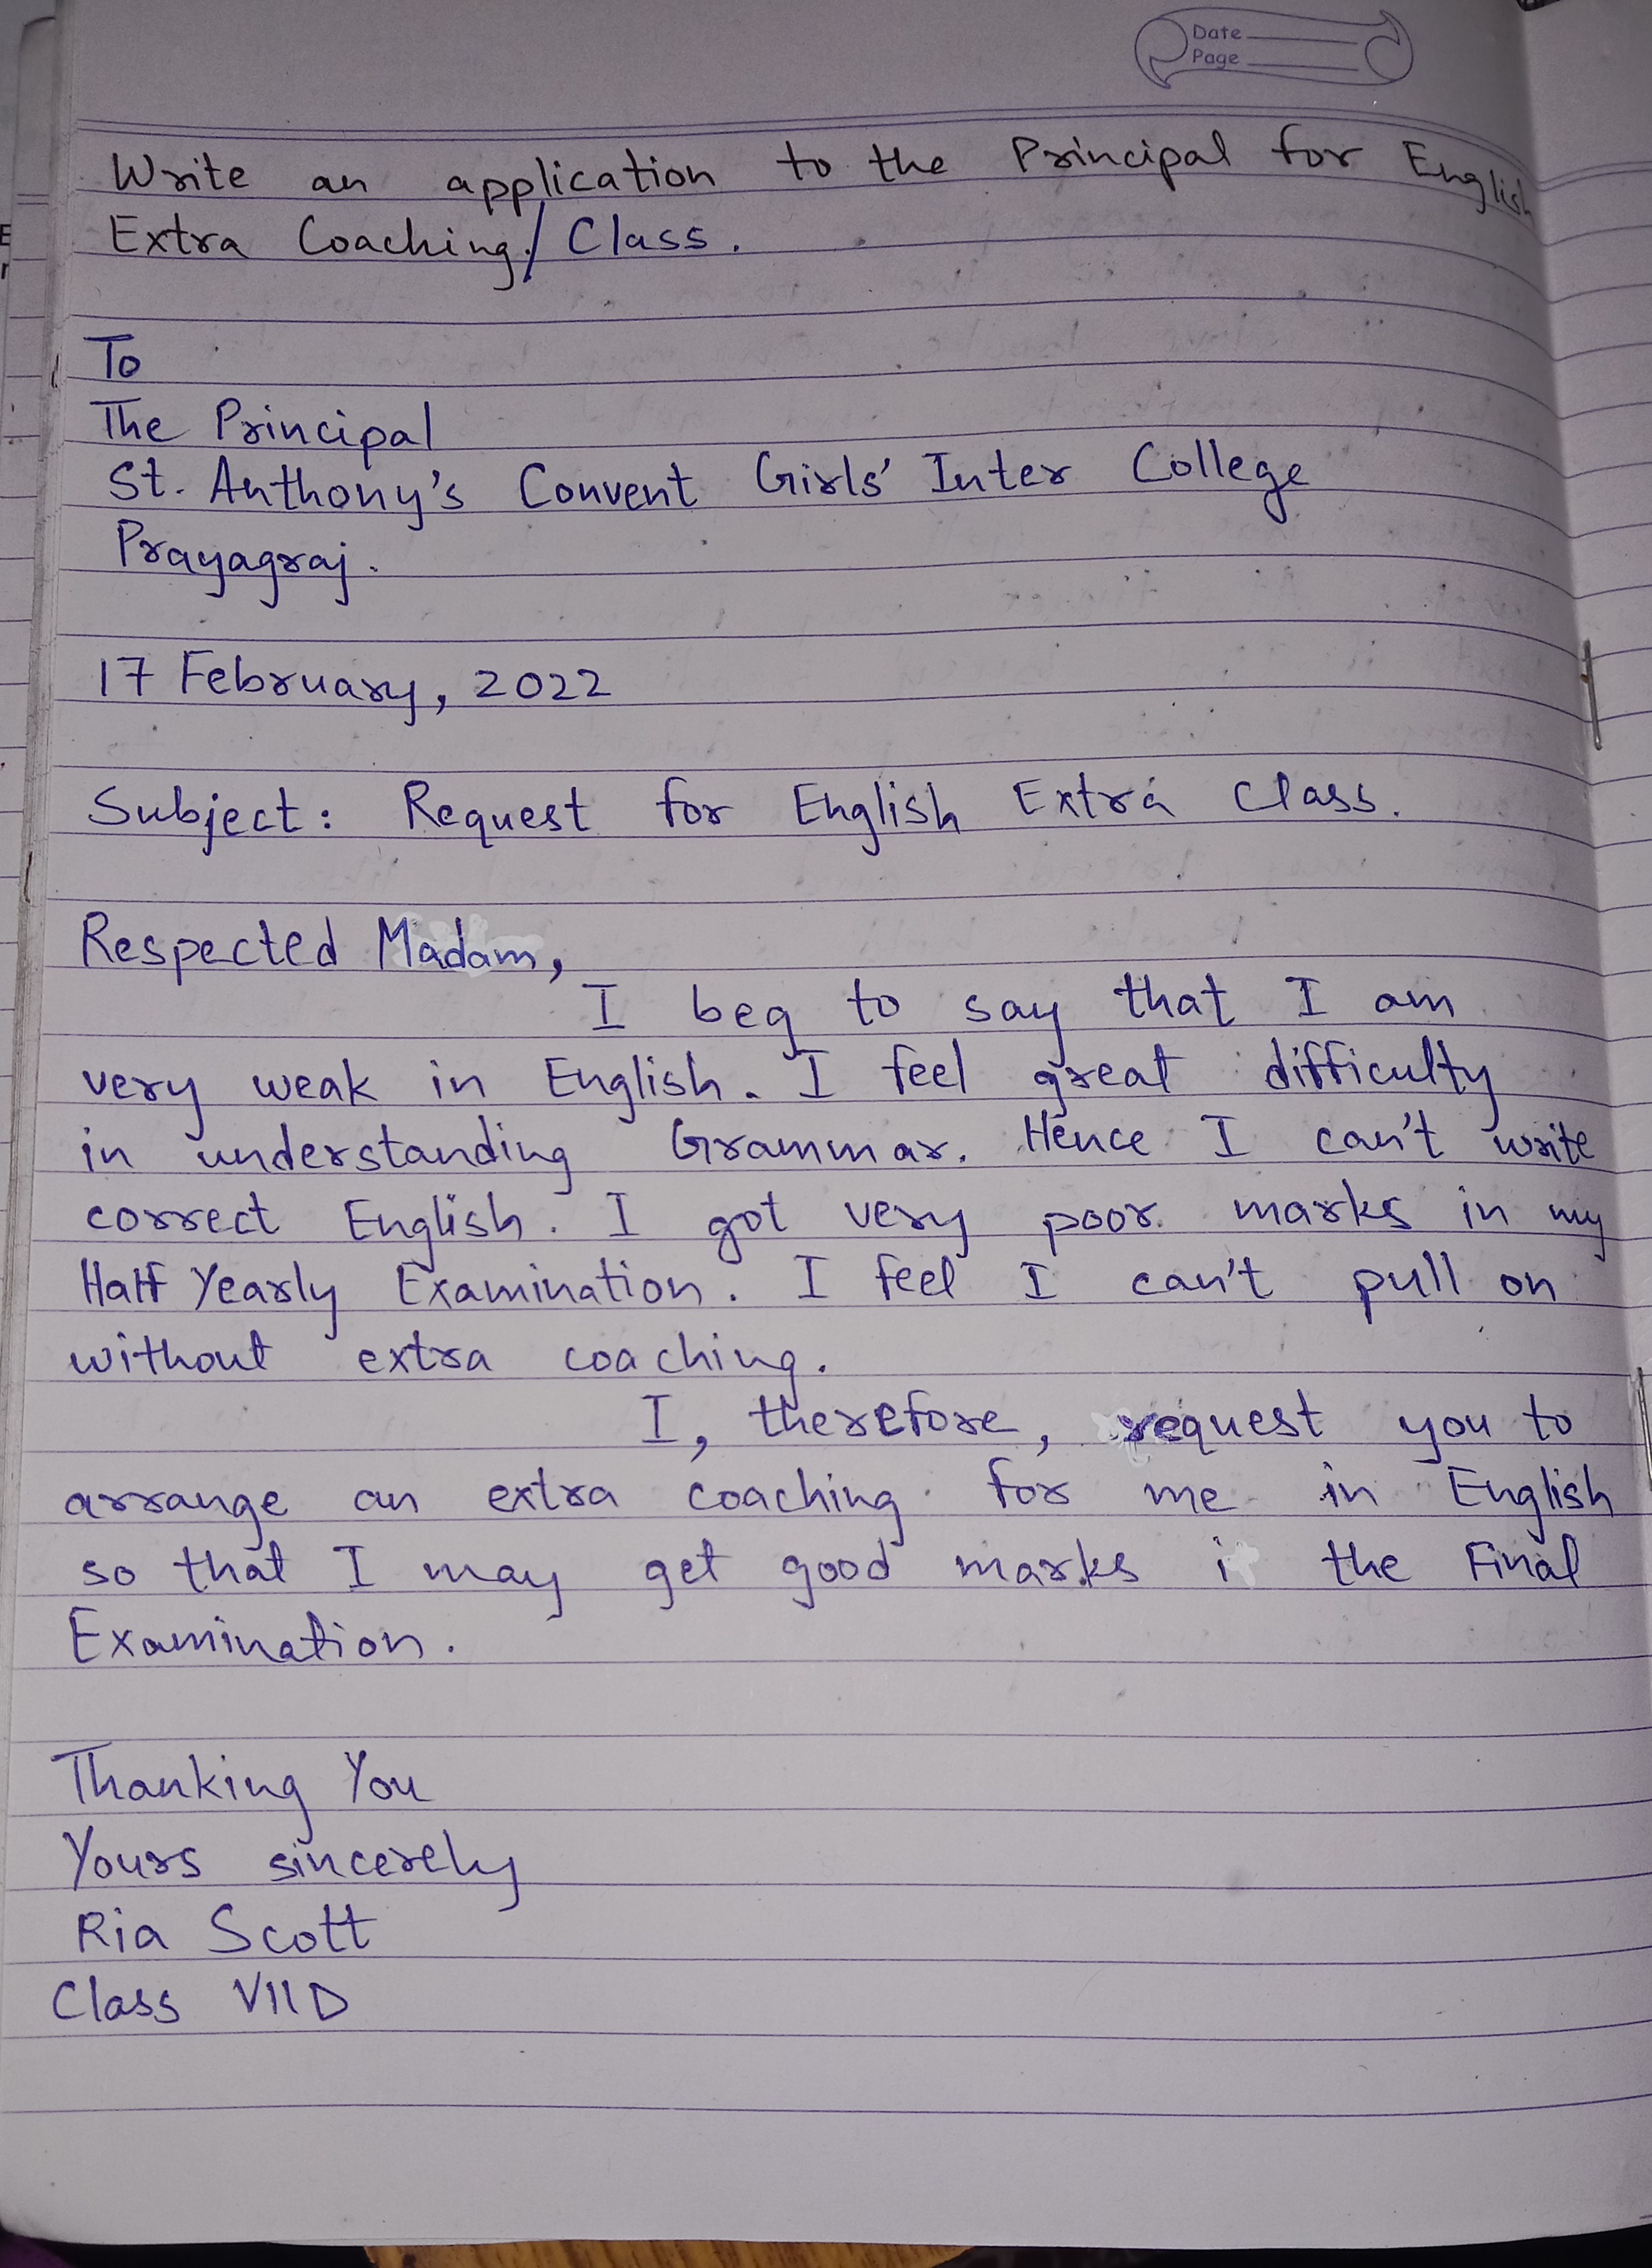 Date
Page
Write an application to the Principal for English
Extra Coaching./ Class.
To
The Principal
St. Anthony's Convent Girls' Inter College
Prayagraj.
17 February, 2022
Subject: Request for English Extra Class.
Respected Madam,
I beg to say that I am
very weak in English. I feel great difficulty
in understanding Grammar. Hence I can't write
correct English. I got very poor marks in my
Half Yearly Examination. I feel I can't pull on
without extra coaching.
I, therefore, request you to
arrange an extra coaching for me in English
so that I may get good marks i the Final
Examination.
Thanking You
Yours sincerely
Ria Scott
Class VII D